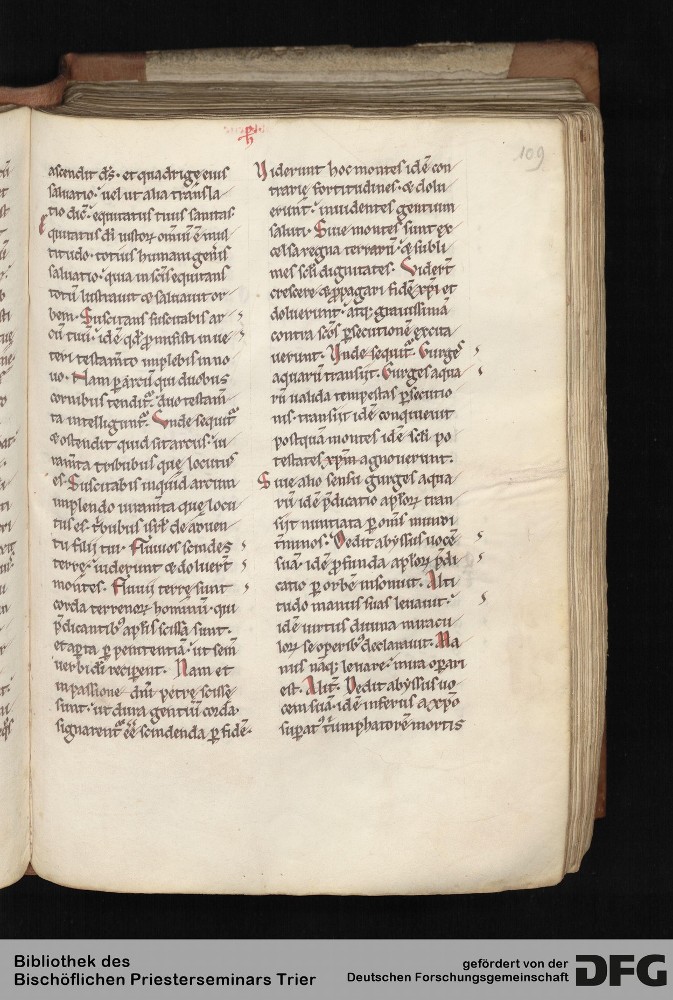 109
ascendit dn̄s· et quadrigę eius
saluatio· uel ut alia transla
tio dic̄· equitatus tuus sanitas·
Equitatus dn̄i iustoꝝ om̄iū ē mul
titudo· totius humani gen̄is
saluatio· qua in sc̄is equitans
totū lustrauit ⁊ saluauit or
bem· Suscitans suscitabis ar
cū tuū· idē qđ promisisti in ue
teri testam̄to implebis in no
uo· Nam ꝑ arcū qui duobus
cornibus tenditur· duo testam̄
ta intelligunt̄· Unde sequit̄
⁊ ostendit quid sit arcus· iu
ram̄ta tribubus que locutus
es· Suscitabis inquid arcum
implendo iuram̄ta que locu
tus es· t̄bubus isr̄l de aduen
tu filii tui· Fluuios scindes
terrę· uiderunt ⁊ doluert̄
montes· Fluuii terrę sunt
corda terrenoꝝ hominū· qui
p̄dicantibꝰ apl̄is scissa sunt·
et aꝑta ꝑ penitentiā· ut sem̄
uerbi dī reciꝑent· Nam et
in passione dn̄i petrę scissę
sunt· ut dura gentiū corda
signarent̄ eē scindenda ꝑ fidē·
Uiderunt hoc montes idē con
trarię fortitudines· ⁊ dolu
erunt· inuidentes gentium
saluti· Siue montes sunt ex
celsa regna terrarū· ⁊ subli
mes scl̄i dignitates· Viderт̄
crescere ⁊ ꝓpagari fidē xp̄i et
doluerunt· atq; grauissimā
contra sc̄os ꝑsecutionē excita
uerunt· Unde sequit̄· Gurges
aquarū transiit· Gurges aqua
rū ualida tempestas ꝑsecutio
nis· transiit idē conquieuit
postquā montes idē scl̄i po
testates xp̄m agnouerunt·
Siue alio sensu gurges aqua
rū idē p̄dicatio apl̄oꝝ tran
siit nuntiata ꝑ om̄s mundi
t̄minos· Dedit abyssus uocē
suā· idē ꝓfunda apl̄oꝝ p̄di
catio ꝑ orbē insonuit· Alti
tudo manus suas leuauit·
idē uirtus diuina miracu
loꝝ se operibꝰ declarauit· Ma
nus naq; leuare· mira oꝑari
est· Alit̄· Dedit abyssus uo
cem suā· idē infernus a xp̄o
suꝑatꝰ t̄umphatorē mortis
Bibliothek des
Bischöflichen Priesterseminars Trier
gefördert von der
Deutschen Forschungsgemeinschaft
DFG